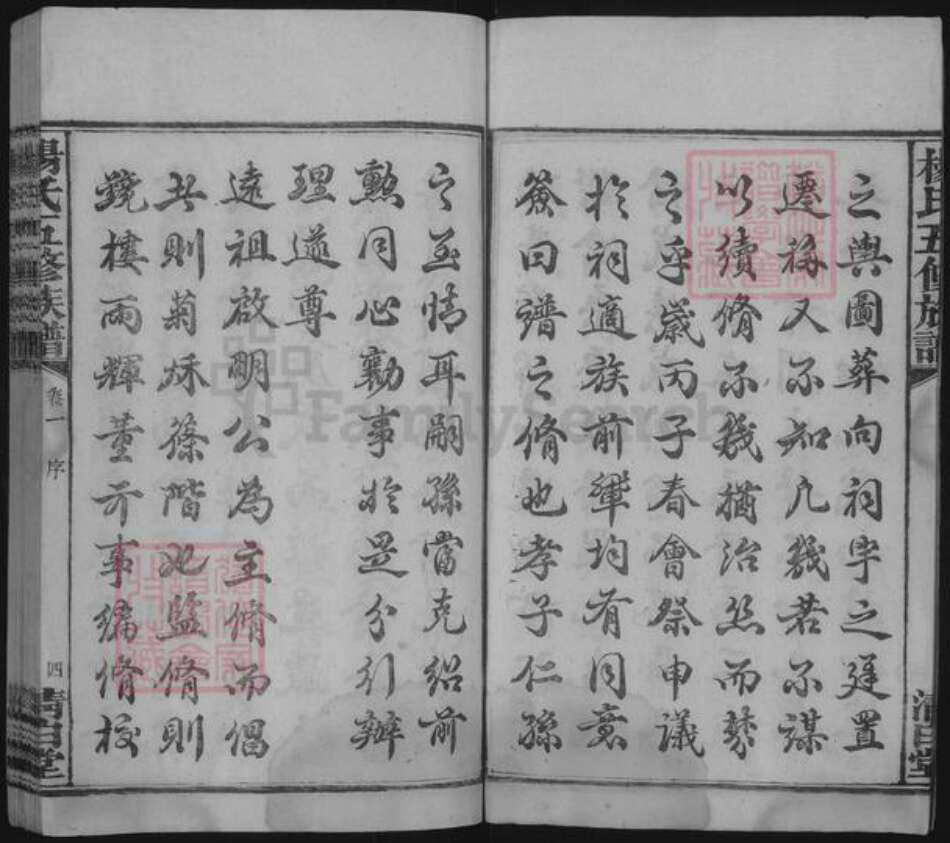 楊氏五修族譜
清白堂
之輿圖葬向祠宇之建置
遷移又不知凡幾若不謀
以續脩不幾猶治絲而棼
之乎歲丙子春會祭申議
於祠適族前輩均有同意
僉曰譜之脩也孝子仁孫
之至情耳嗣孫當克紹前
勲同心勷事於是分行辦
理遵尊
遠祖啟明公為主脩而倡
其則菊秌篠階也監脩則
鏡樓雨輝董亓事編脩校
楊氏五修族譜
卷一
序
四
清白堂
FamilySearch